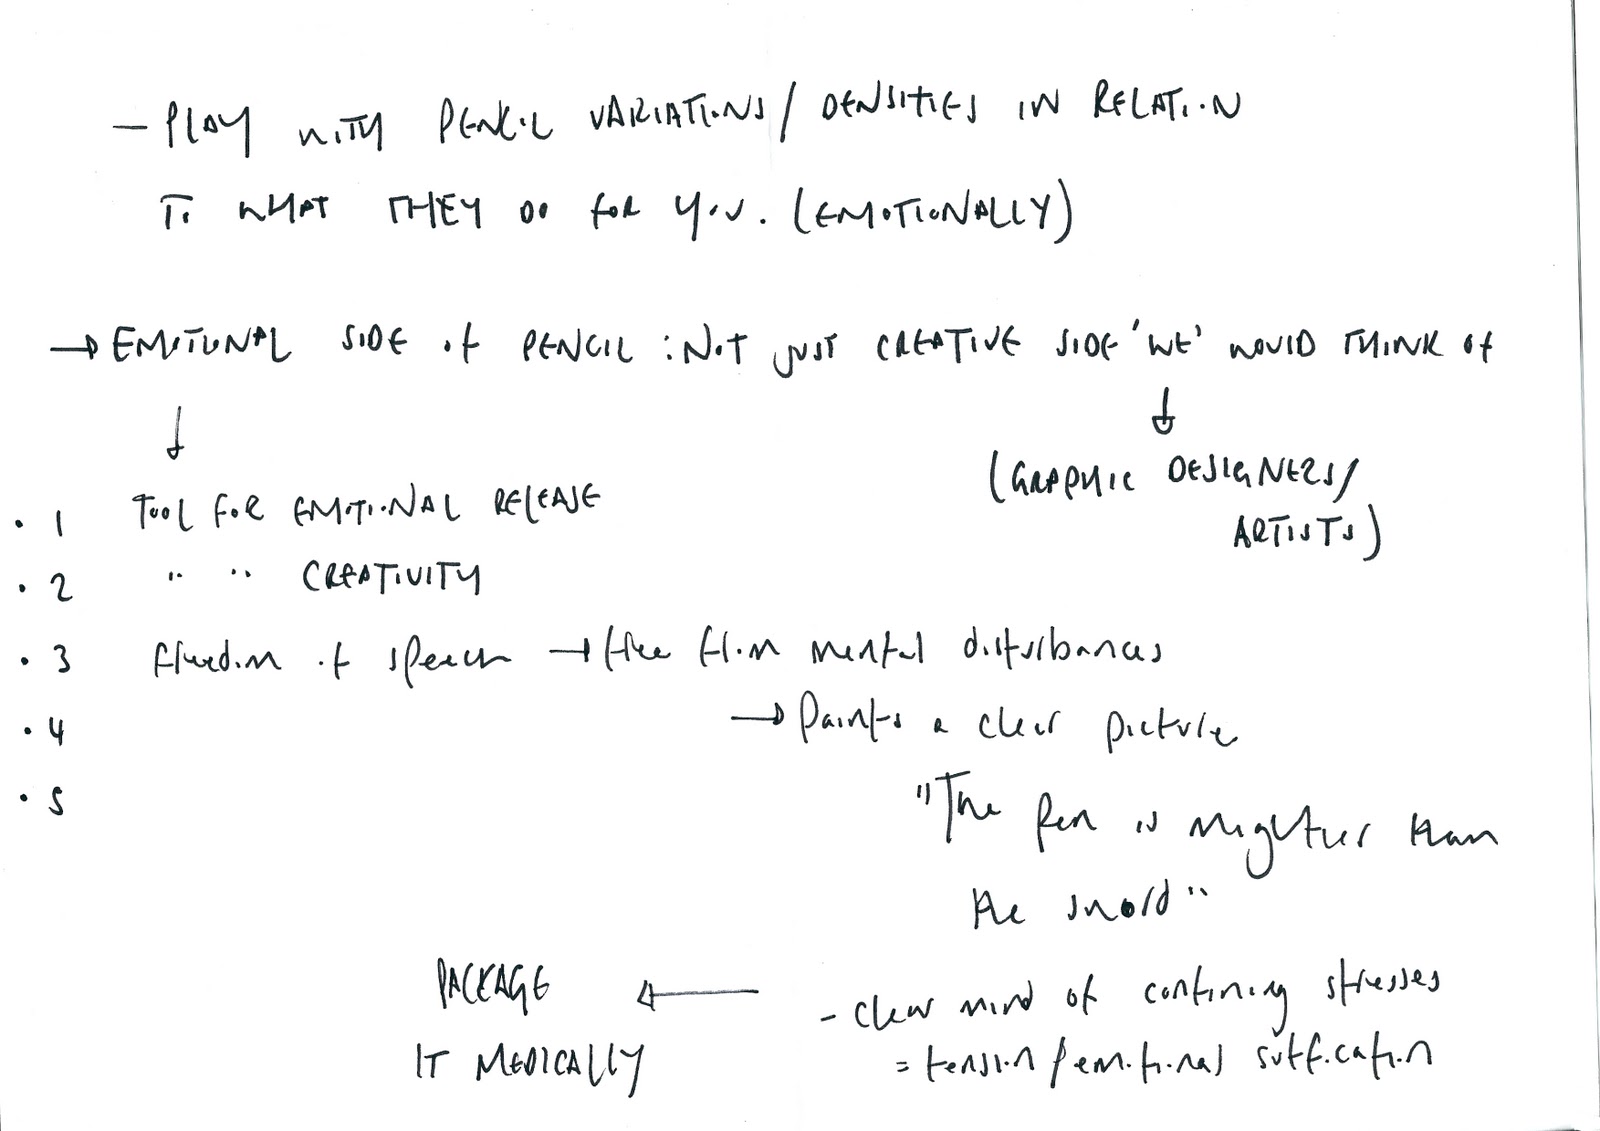 - PLAY WITH PENCIL VARIATIONS / DENSITIES IN RELATION
TO WHAT THEY DO FOR YOU. (EMOTIONALLY)
→ EMOTIONAL SIDE OF PENCIL : NOT JUST CREATIVE SIDE 'WE' WOULD THINK OF
↓ ↓
(GRAPHIC DESIGNERS/
ARTISTS)
• 1 TOOL FOR EMOTIONAL RELEASE
• 2 " " CREATIVITY
• 3 freedom of speech → free from mental disturbances
• 4 → Paints a clear picture
• 5 "The Pen is mightier than
the sword"
- clear mind of confining stresses
= tension / emotional suffication
PACKAGE ←
IT MEDICALLY